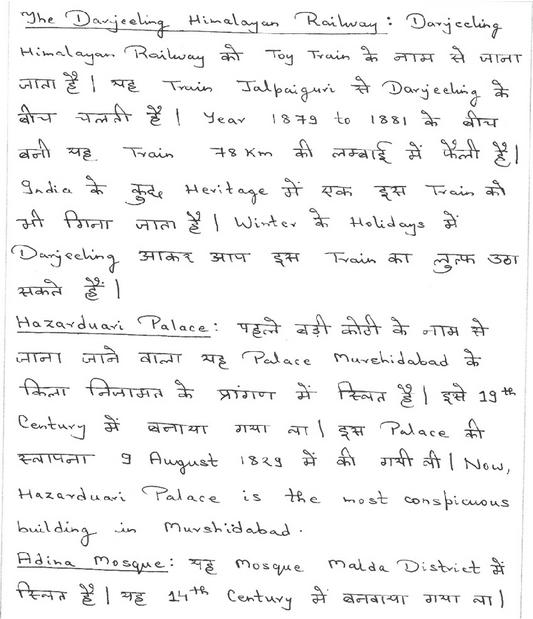 The Darjeeling Himalayan Railway : Darjeeling
Himalayan Railway को Toy Train के नाम से जाना
जाता है | यह Train Jalpaiguri से Darjeeling के
बीच चलती है | Year 1879 to 1881 के बीच
बनी यह Train 78 Km की लम्बाई में फैली है |
India के कुछ Heritage में एक इस Train को
भी गिना जाता है | Winter के Holidays में
Darjeeling आकर आप इस Train का लुत्फ उठा
सकते हैं |
Hazarduari Palace : पहले बड़ी कोठी के नाम से
जाना जाने वाला यह Palace Murshidabad के
किला निजामत के प्रांगण में स्थित है | इसे 19th
Century में बनाया गया था | इस Palace की
स्थापना 9 August 1829 में की गयी थी | Now,
Hazarduari Palace is the most conspicuous
building in Murshidabad.
Adina Mosque : यह Mosque Malda District में
स्थित है | यह 14th Century में बनवाया गया था |